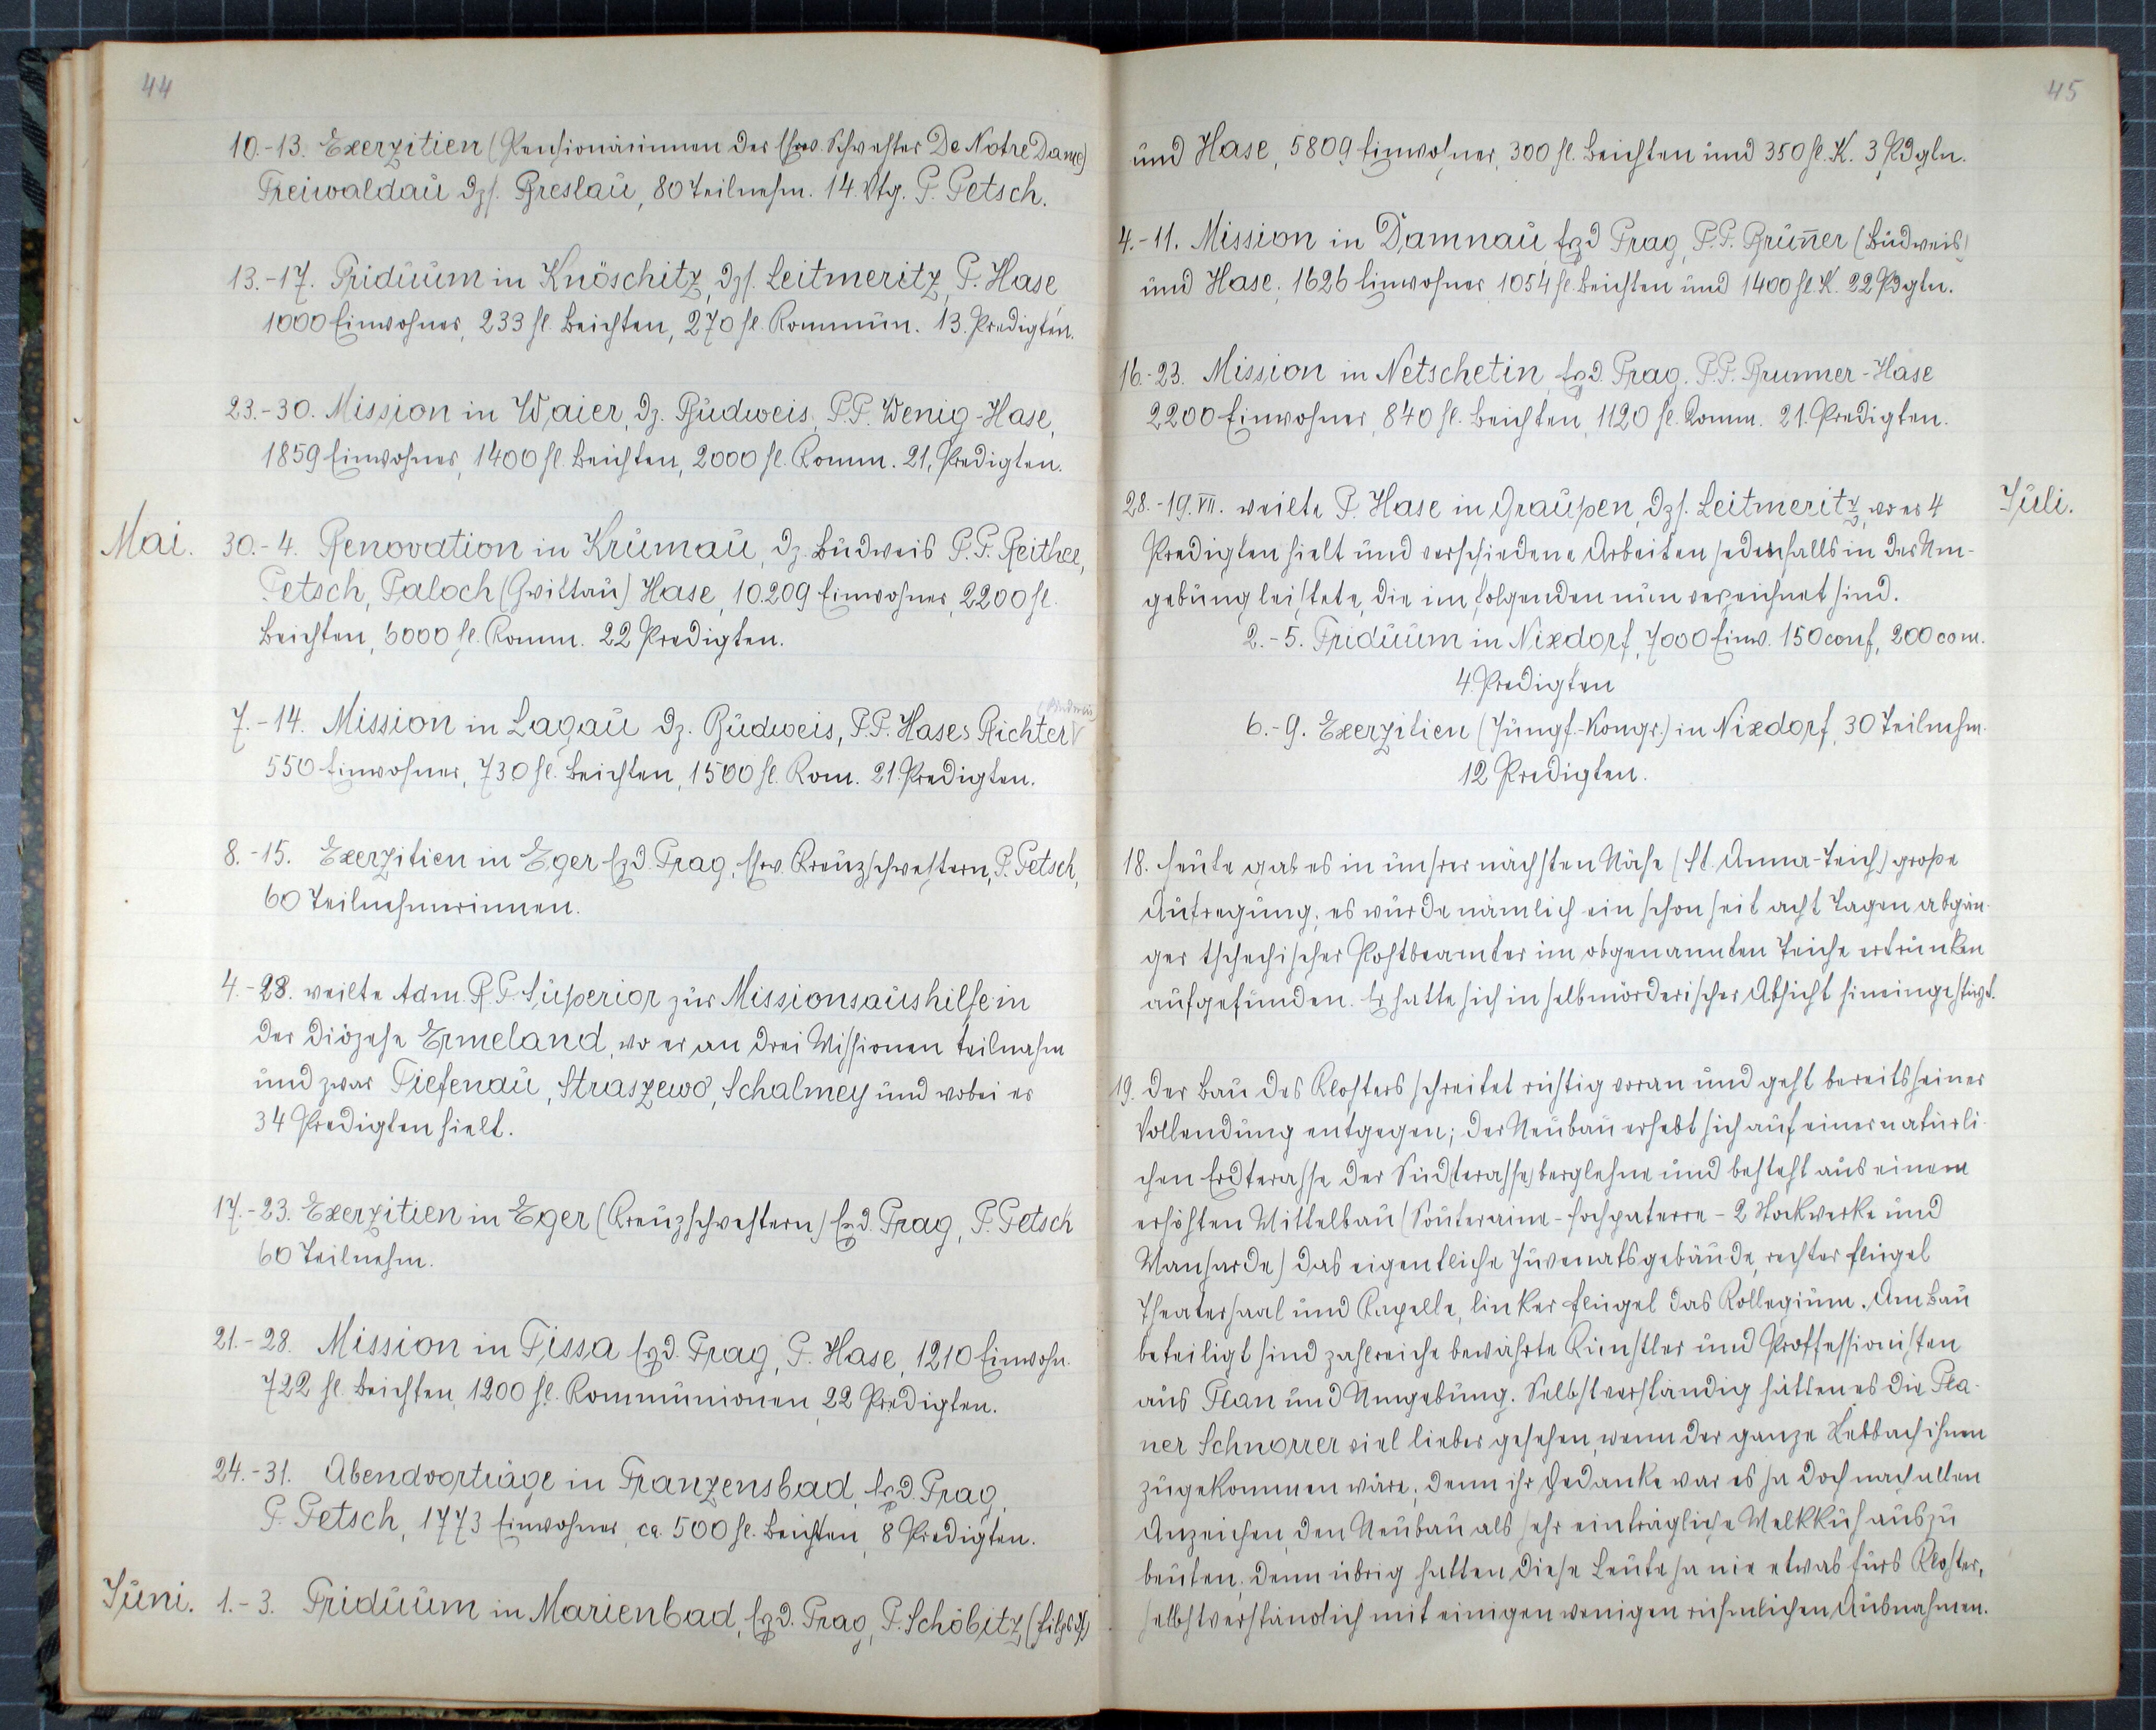 44
10.-13. Exerzitien (Pensionärinnen der Ehrw. Schwester De Notre Dame)
Freiwaldau Dzs. Breslau, 80 Teilnehm. 14. Vtg. P. Petsch.
13.-17. Triduum in Knöschitz, Dzs. Leitmeritz, P. Hase
1000 Einwohner, 233 hl. Beichten, 270 hl. Kommun. 13. Predigten.
23.-30. Mission in Waier, Dz. Budweis, P.P. Wenig-Hase,
1859 Einwohner, 1400 hl. Beichten, 2000 hl. Komm. 21. Predigten.
Mai. 30.-4. Renovation in Krumau, Dz. Budweis P.P. Reithel,
Petsch, Paloch (Zwittau) Hase, 10.209 Einwohner, 2200 hl.
Beichten, 6000 hl. Komm. 22 Predigten.
(Budweis)
7.-14. Mission in Lagau Dz. Budweis, P.P. Hase, Richter
550 Einwohner, 730 hl. Beichten, 1500 hl. Kom. 21. Predigten.
8.-15. Exerzitien in Eger Erzd. Prag, Ehrw. Kreuzschwestern, P. Petsch,
60 Teilnehmerinnen.
4.-28. weilte Adm. R. P. Superior zur Missionsaushilfe in
der Diözese Ermeland, wo er an drei Missionen teilnahm
und zwar Tiefenau, Straszewo, Schalmey und wobei er
34 Predigten hielt.
17.-23. Exerzitien in Eger (Kreuzschwestern) Erzd. Prag, P. Petsch
60 Teilnehm.
21.-28. Mission in Tissa Erzd. Prag, P. Hase, 1210 Einwohn.
722 hl. Beichten, 1200 hl. Kommunionen, 22 Predigten.
24.-31. Abendvorträge in Franzensbad, Erzd. Prag,
P. Petsch, 1773 Einwohner, ca. 500 hl. Beichten, 8 Predigten.
Juni. 1.-3. Triduum in Marienbad, Erzd. Prag, P. Schöbitz,
45
und Hase, 5809 Einwohner, 300 hl. Beichten und 350 hl. K. 3 Pdgtn.
4.-11. Mission in Damnau, Erzd Prag, P.P. Brun̅er (Budweis)
und Hase. 1626 Einwohner 1054 hl. Beichten und 1400 hl. K. 22 Pdgtn.
16.-23. Mission in Netschetin, Erzd. Prag. P.P. Brunner-Hase
2200 Einwohner, 840 hl. Beichten, 1120 hl. Komm. 21. Predigten.
28.-19. VII. weilte P. Hase in Graupen, Dzs. Leitmeritz, wo er 4 Juli.
Predigten hielt und verschiedene Arbeiten jedenfalls in der Um-
gebung leistete, die im folgenden nun verzeichnet sind.
2.-5. Triduum in Nixdorf, 7000 Einw. 150 conf, 200 com.
4. Predigten
6.-9. Exerzitien (Jungf.-Kongr.) in Nixdorf, 30 Teilnehm.
12 Predigten.
18. Heute gab es in unsrer nächsten Nähe (St. Anna-Teich) große
Aufregung; es wurde nämlich ein schon seit acht Tagen abgän-
ger tschechischer Postbeamter im obgenannten Teiche ertrunken
aufgefunden. Er hatte sich in selbmörderischer Absicht hineingestürzt.
19. Der Bau des Klosters schreitet rüstig voran und geht bereits seiner
Vollendung entgegen; der Neubau erhebt sich auf einer natürli-
chen Erdterasse der Süd(terasse)berglehne und besteht aus einem
erhöhten Mittelbau (Souteraine-Hochpaterre - 2 Stockwerke und
Mansarde) das eigentliche Juvenatsgebäude, rechter Flügel
Theatersaal und Kapelle, linker Flügel das Kollegium. Am Bau
beteiligt sind zahlreiche bewährte Künstler und Proffessionisten
aus Plan und Umgebung. Selbstverständig hätten es die Pla-
ner Schnorrer viel lieber gesehen, wenn der ganze ihnen
zugekommen wäre, denn ihr Gedanke war es ja doch nach allen
Anzeichen, den Neubau als sehr einträgliche Melkkuh auszu
beuten, denn übrig hatten diese Leute ja nie etwas fürs Kloster,
selbstverständlich mit einigen wenigen rühmlichen Ausnahmen.